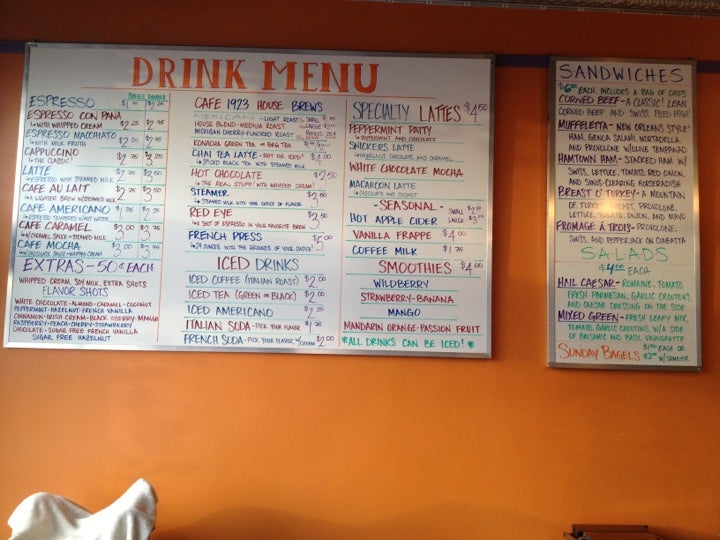 DRINK MENU
SINGLE DOUBLE
ESPRESSO
ESPRESSO CON PANA
WITH WHIPPED CREAM $2.25 $2.75
ESPRESSO MACCHIATO
WITH MILK FROTH $2.25 $2.75
CAPPUCCINO
THE CLASSIC
LATTE
ESPRESSO WITH STEAMED MILK
CAFE AU LAIT
CAFE AMERICANO
CAFE CARAMEL
CAFE MOCHA
EXTRAS - 50¢ EACH
WHIPPED CREAM, SOY MILK, EXTRA SHOTS
FLAVOR SHOTS
WHITE CHOCOLATE - ALMOND - CARAMEL - COCONUT
PEPPERMINT - HAZELNUT - FRENCH VANILLA
CINNAMON - IRISH CREAM - BLACK CHERRY - MANGO
RASPBERRY - PEACH - CHERRY - STRAWBERRY
CHOCOLATE - SUGAR FREE FRENCH VANILLA
SUGAR FREE HAZELNUT
CAFE 1923 HOUSE BREWS
MEXICAN - LIGHT ROAST
HOUSE BLEND - MEDIUM ROAST
MICHIGAN CHERRY - FLAVORED ROAST
KONACHA GREEN TEA OR BAG TEA
CHAI TEA LATTE - HOT OR ICED!
SPICED BLACK TEA WITH STEAMED MILK
HOT CHOCOLATE $2.50
THE REAL STUFF WITH WHIPPED CREAM
STEAMER
STEAMED MILK WITH YOUR CHOICE OF FLAVOR
RED EYE
A SHOT OF ESPRESSO IN YOUR FAVORITE BREW
FRENCH PRESS
24 OUNCES WITH THE GROUNDS OF YOUR CHOICE
ICED DRINKS
ICED COFFEE (ITALIAN ROAST) $2.00
ICED TEA (GREEN OR BLACK) $2.00
ICED AMERICANO $2.25
ITALIAN SODA - PICK YOUR FLAVOR $1.75
FRENCH SODA - PICK YOUR FLAVOR, W/CREAM $2.00
SPECIALTY LATTES $4.50
PEPPERMINT PATTY
PEPPERMINT AND CHOCOLATE
SNICKERS LATTE
HAZELNUT, CHOCOLATE AND CARAMEL
WHITE CHOCOLATE MOCHA
MACAROON LATTE
CHOCOLATE AND COCONUT
- SEASONAL -
HOT APPLE CIDER SMALL LARGE
VANILLA FRAPPE $4.00
COFFEE MILK $1.75
SMOOTHIES $4.00
WILDBERRY
STRAWBERRY - BANANA
MANGO
MANDARIN ORANGE - PASSION FRUIT
*ALL DRINKS CAN BE ICED! *
SANDWICHES
EACH, INCLUDES A BAG OF CHIPS
CORNED BEEF - A CLASSIC! LEAN
CORNED BEEF AND SWISS, PILED HIGH!
MUFFELETTA - NEW ORLEANS STYLE!
HAM, GENOA SALAMI, MORTADELLA,
AND PROVOLONE W/OLIVE TEMPANAD
HAMTOWN HAM - STACKED HAM W/
SWISS, LETTUCE, TOMATO, RED ONION
AND SINUS-CLEARING HORSERADISH
BREAST O' TURKEY - A MOUNTAIN
OF TURKEY BREAST, PROVOLONE,
LETTUCE, TOMATO, ONION, AND MAYO
FROMAGE A TROIS - PROVOLONE,
SWISS, AND PEPPERJACK ON CIABATTA
SALADS
EACH
HAIL CAESAR - ROMAINE, TOMATO,
FRESH PARMESAN, GARLIC CROUTONS,
AND CAESAR DRESSING ON THE SIDE
MIXED GREEN - FRESH LEAFY MIX,
TOMATO, GARLIC CROUTONS, W/A SIDE
OF BALSAMIC AND BASIL VINAIGRETTE
SUNDAY BAGELS EACH OR
W/ SCHMEER